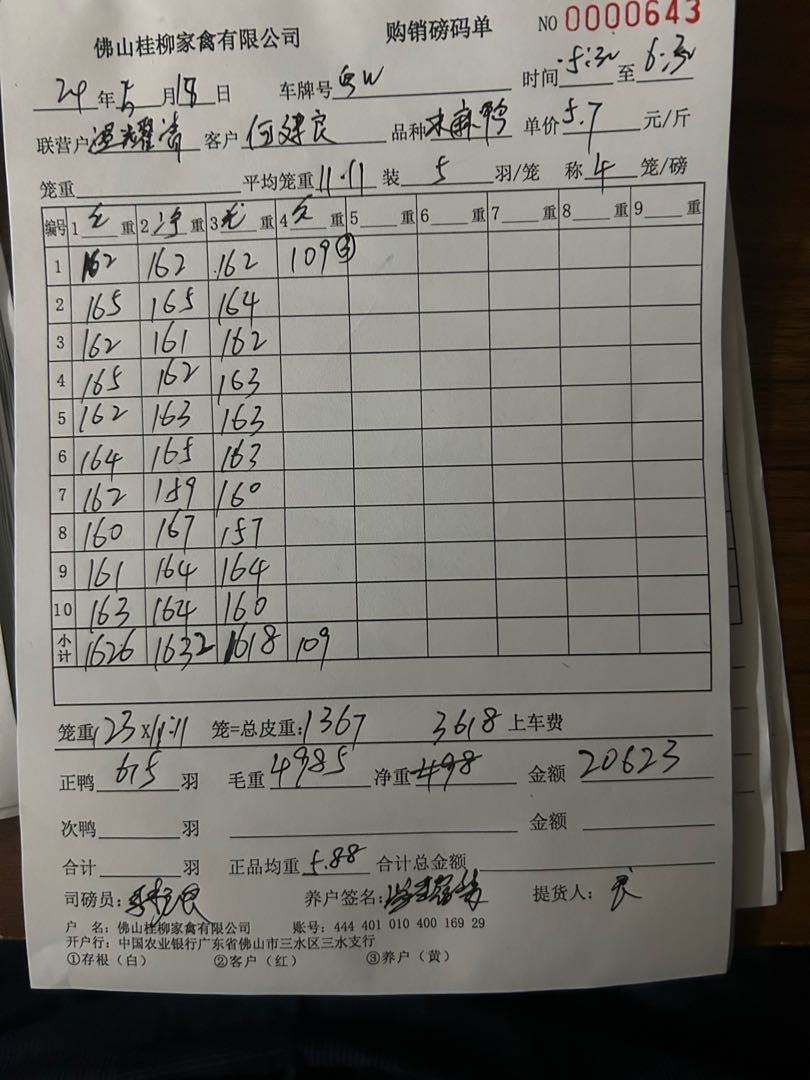 佛山桂柳家禽有限公司 购销磅码单 NO 0000643
24年5月18日 车牌号 时间 5:30 至 6:30
联营户 温耀清 客户 何建良 品种 水麻鸭 单价 5.7 元/斤
笼重 平均笼重 11.11 装 5 羽/笼 称 4 笼/磅
编号 1 毛 重 2 净 重 3 毛 重 4 重 5 重 6 重 7 重 8 重 9 重
1 162 162 162 109③
2 165 165 164
3 162 161 162
4 165 162 163
5 162 163 163
6 164 165 163
7 162 159 160
8 160 167 157
9 161 164 164
10 163 164 160
小计 1626 1632 1618 109
笼重 123 X 11.11 笼=总皮重: 1367 3618 上车费
正鸭 615 羽 毛重 4985 净重 金额 20623
次鸭 羽 金额
合计 羽 正品均重 5.88 合计总金额
司磅员: 养户签名: 提货人: 良
户 名: 佛山桂柳家禽有限公司 账号: 444 401 010 400 169 29
开户行: 中国农业银行广东省佛山市三水区三水支行
①存根(白) ②客户(红) ③养户(黄)